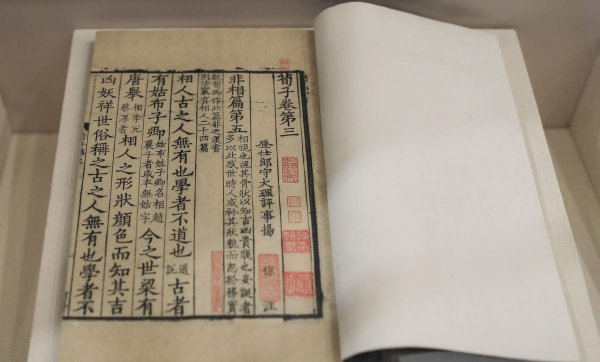 荀子卷第三
登仕郎守大理評事楊 倞 注
非相篇第五 相視也視其骨狀以知吉凶貴賤也妄誕者多以此惑世時人或矜其狀貌而忽於務實
故荀卿作此篇非之漢書刑法家有相人二十四篇
相人古之人無有也學者不道也 道說 古者
有姑布子卿 姑布姓子卿名相趙襄子者或本無姑字 今之世梁有
唐舉 相李兊蔡澤者 相人之形狀顏色而知其吉
凶妖祥世俗稱之古之人無有也學者不